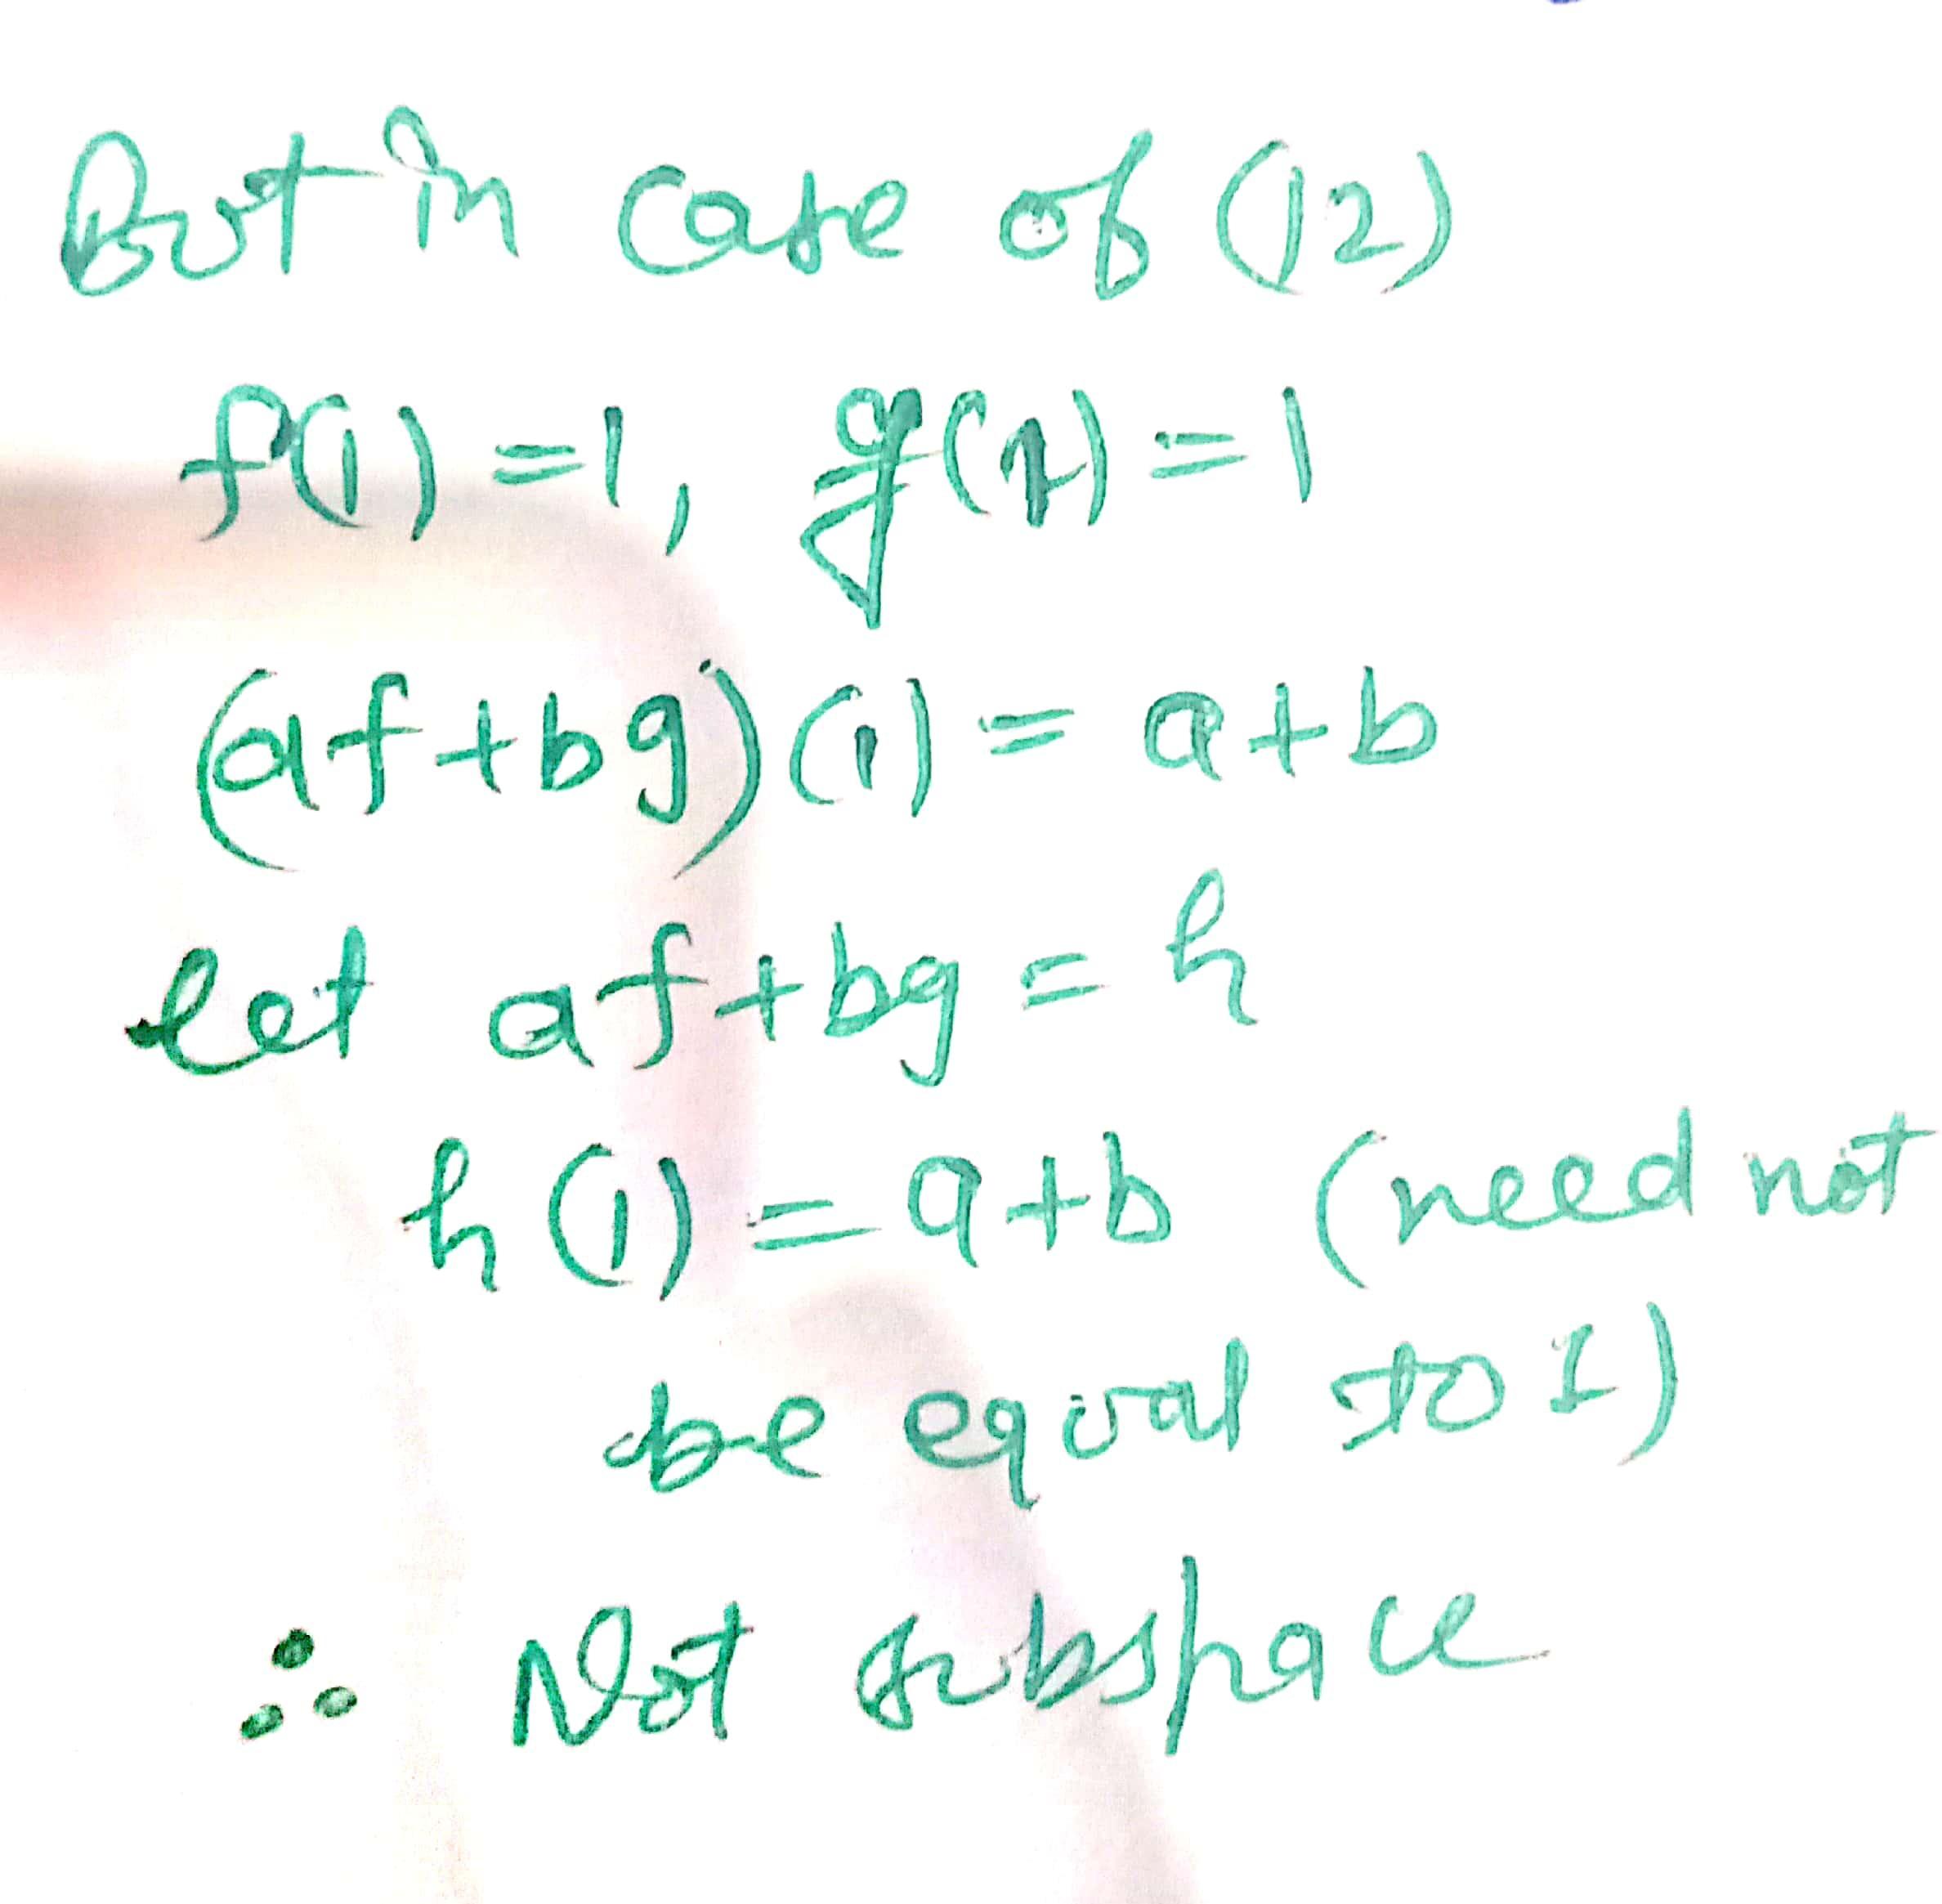 But in case of (12)
f(1) = 1, g(1) = 1
(af + bg)(1) = a + b
let af + bg = h
h(1) = a + b (need not
be equal to 1)
∴ Not subspace